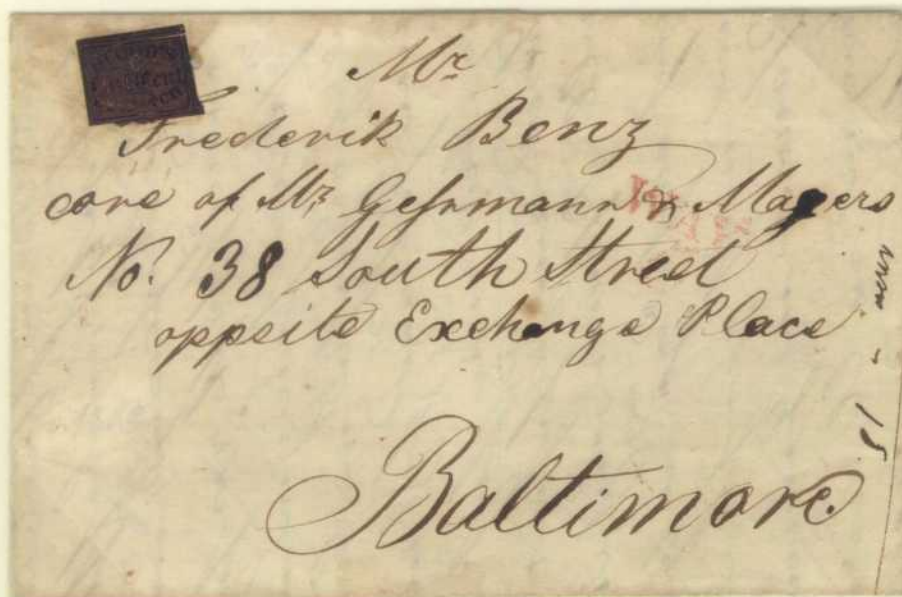 Mr
Frederik Benz
care of Mr Gehrmann & Magers
No. 38 South Street
opposite Exchange Place
Baltimore.
15